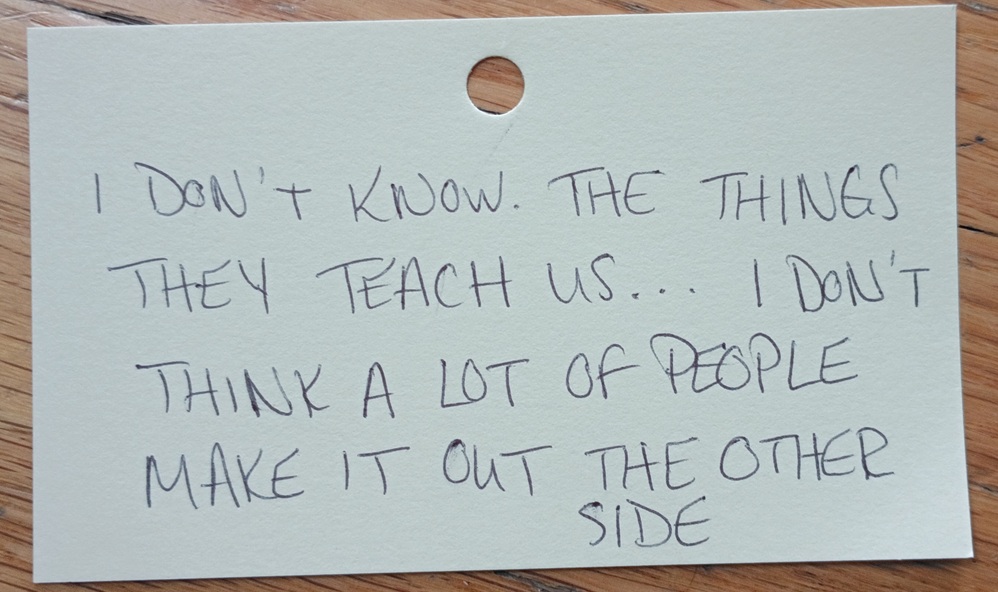 I DON'T KNOW. THE THINGS
THEY TEACH US... I DON'T
THINK A LOT OF PEOPLE
MAKE IT OUT THE OTHER
SIDE